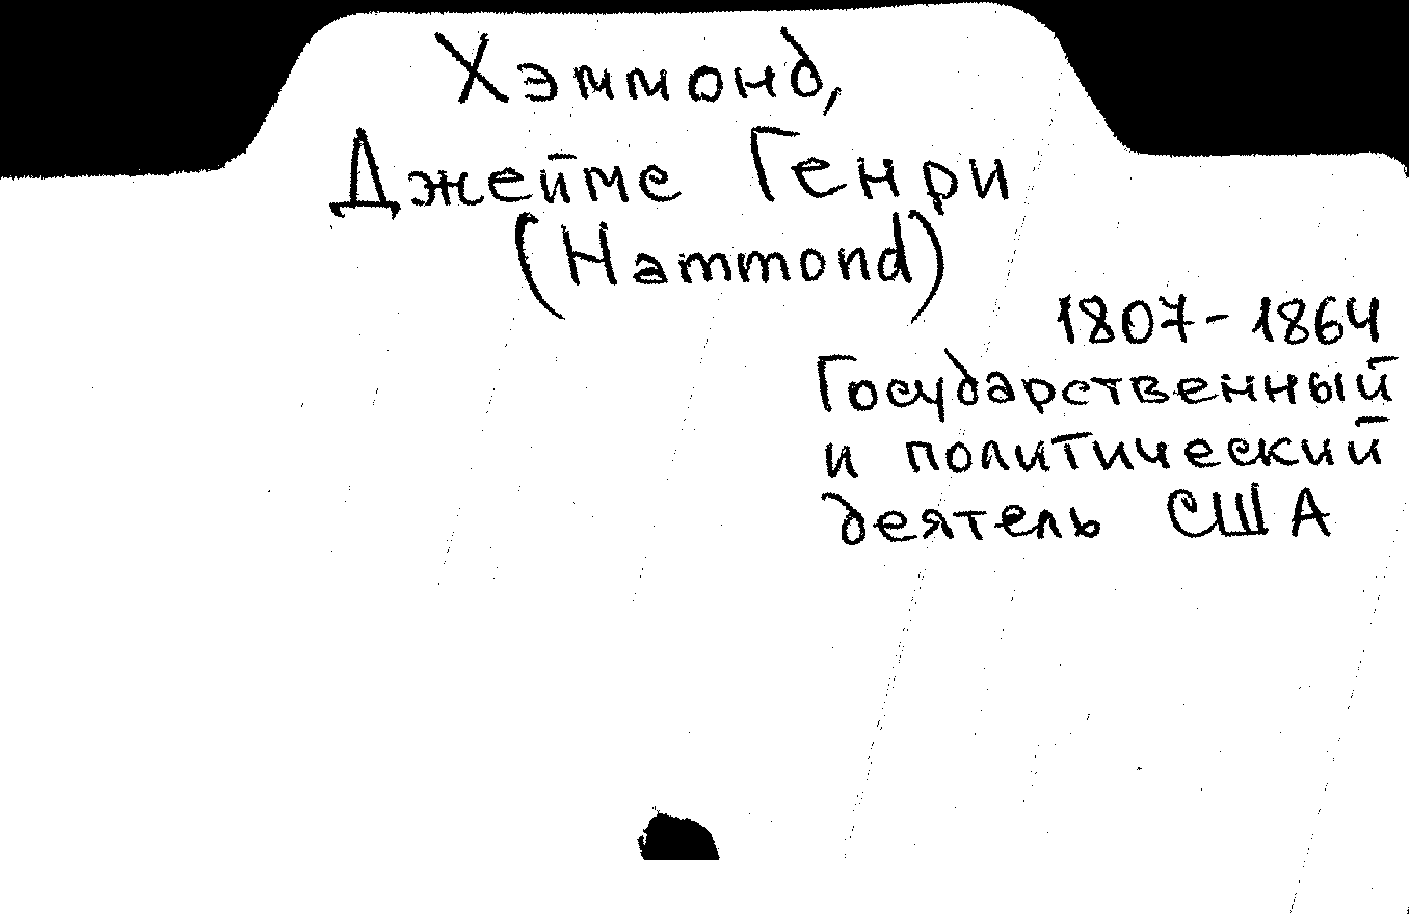 Хэммонд,
Джеймс Генри
(Hammond)
1807-1864
Государственный
и политический
деятель США